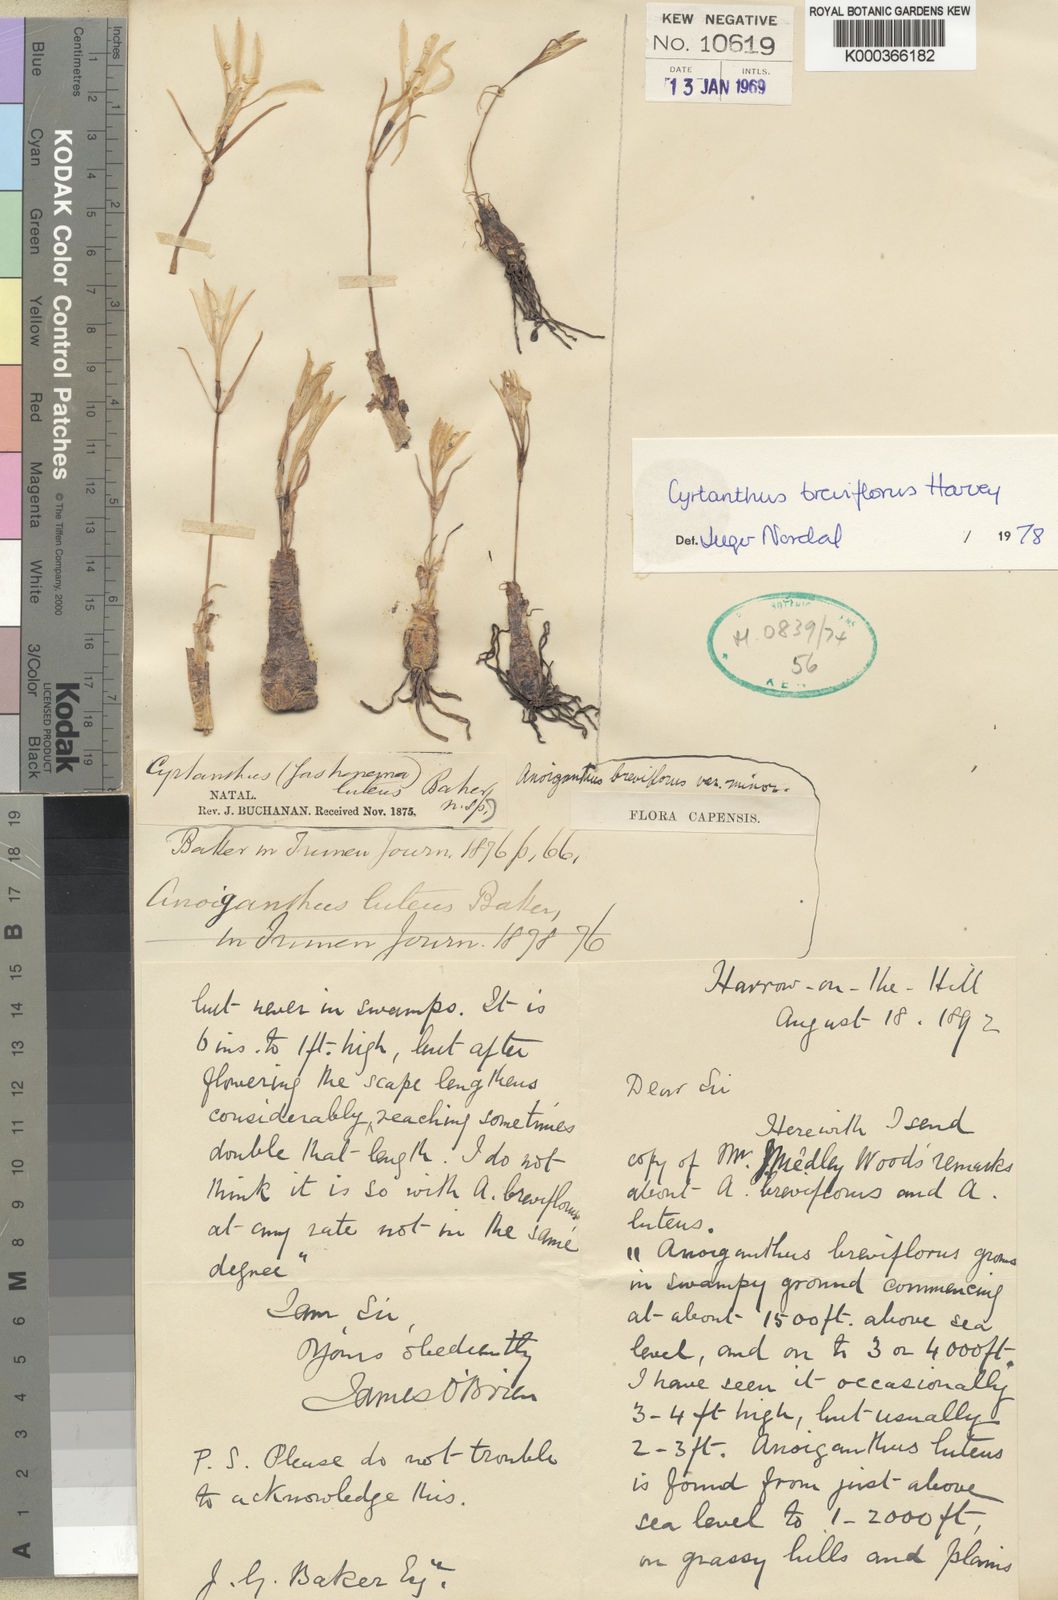 KEW NEGATIVE
No. 10619
DATE INTLS.
13 JAN 1969
ROYAL BOTANIC GARDENS KEW
K000366182
Inches
Centimetres
KODAK Color Control Patches
© The Tiffen Company, 2000
Kodak
LICENSED PRODUCT
Blue
Cyan
Green
Yellow
Red
Magenta
White
3/Color
Black
Cyrtanthus breviflorus Harvey
Det. Inger Nordal / 1978
H. 0839/74
56
KEW
Cyrtanthus (Gastronema)
luteus Baker
n. sp.)
NATAL.
Rev. J. BUCHANAN. Received Nov. 1875.
Anoiganthus breviflorus var. minor.
FLORA CAPENSIS.
Baker in Trimen Journ. 1876 p, 66,
Anoiganthus luteus Baker,
in Trimen Journ. 1878 76
Harrow-on-the-Hill
August 18. 1892
Dear Sir
Herewith I send
copy of Mr. Medley Woods' remarks
about A. breviflorus and A.
luteus.
"Anoiganthus breviflorus grows
in swampy ground commencing
at about 1500ft. above sea
level, and on to 3 or 4000ft.
I have seen it occasionally
3-4 ft high, but usually
2-3ft. Anoiganthus luteus
is found from just above
sea level to 1-2000ft,
on grassy hills and plains
but never in swamps. It is
6 ins. to 1ft. high, but after
flowering the scape lengthens
considerably, reaching sometimes
double that length. I do not
think it is so with A. breviflorus
at any rate not in the same
degree"
I am, Sir,
Yours obediently
James O'Brien
P. S. Please do not trouble
to acknowledge this.
J. G. Baker Esqre.